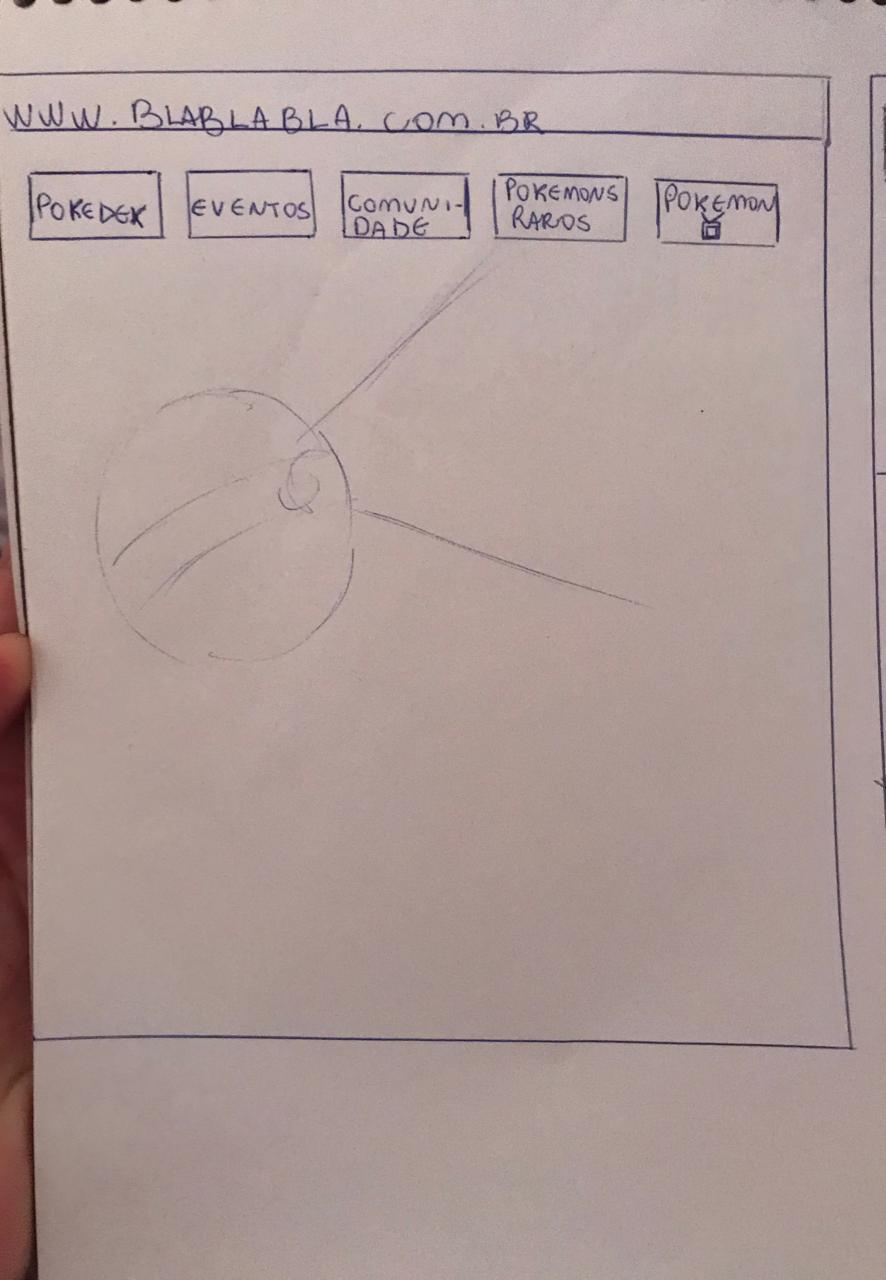 WWW.BLABLABLA.COM.BR
POKEDEX
EVENTOS
COMUNI-
DADE
POKEMONS
RAROS
POKEMON